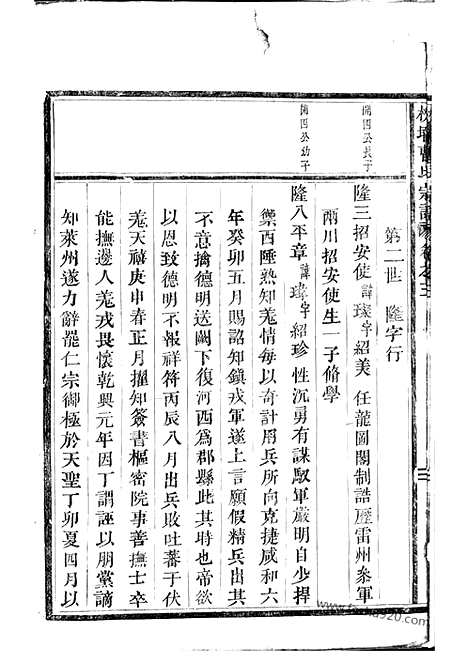 曹氏宗譜 卷之三
第二世 隆字行
開四公長子
隆三招安使諱璨字紹美 任龍圖閣制誥歷雷州叅軍
兩川招安使生一子脩學
開四公幼子
隆八平章諱瑋字紹珍 性沉勇有謀馭軍嚴明自少捍
禦西陲熟知羌情每以奇計用兵所向克捷咸和六
年癸卯五月賜詔知鎮戎軍遂上言願假精兵出其
不意擒德明送闕下復河西爲郡縣此其時也帝欲
以恩致德明不報祥符丙辰八月出兵敗吐蕃于伏
羌天禧庚申春正月擢知簽書樞密院事善撫士卒
能撫邊人羌戎畏懷乾興元年因丁謂誣以朋黨謫
知萊州遂力辭罷仁宗御極於天聖丁卯夏四月以